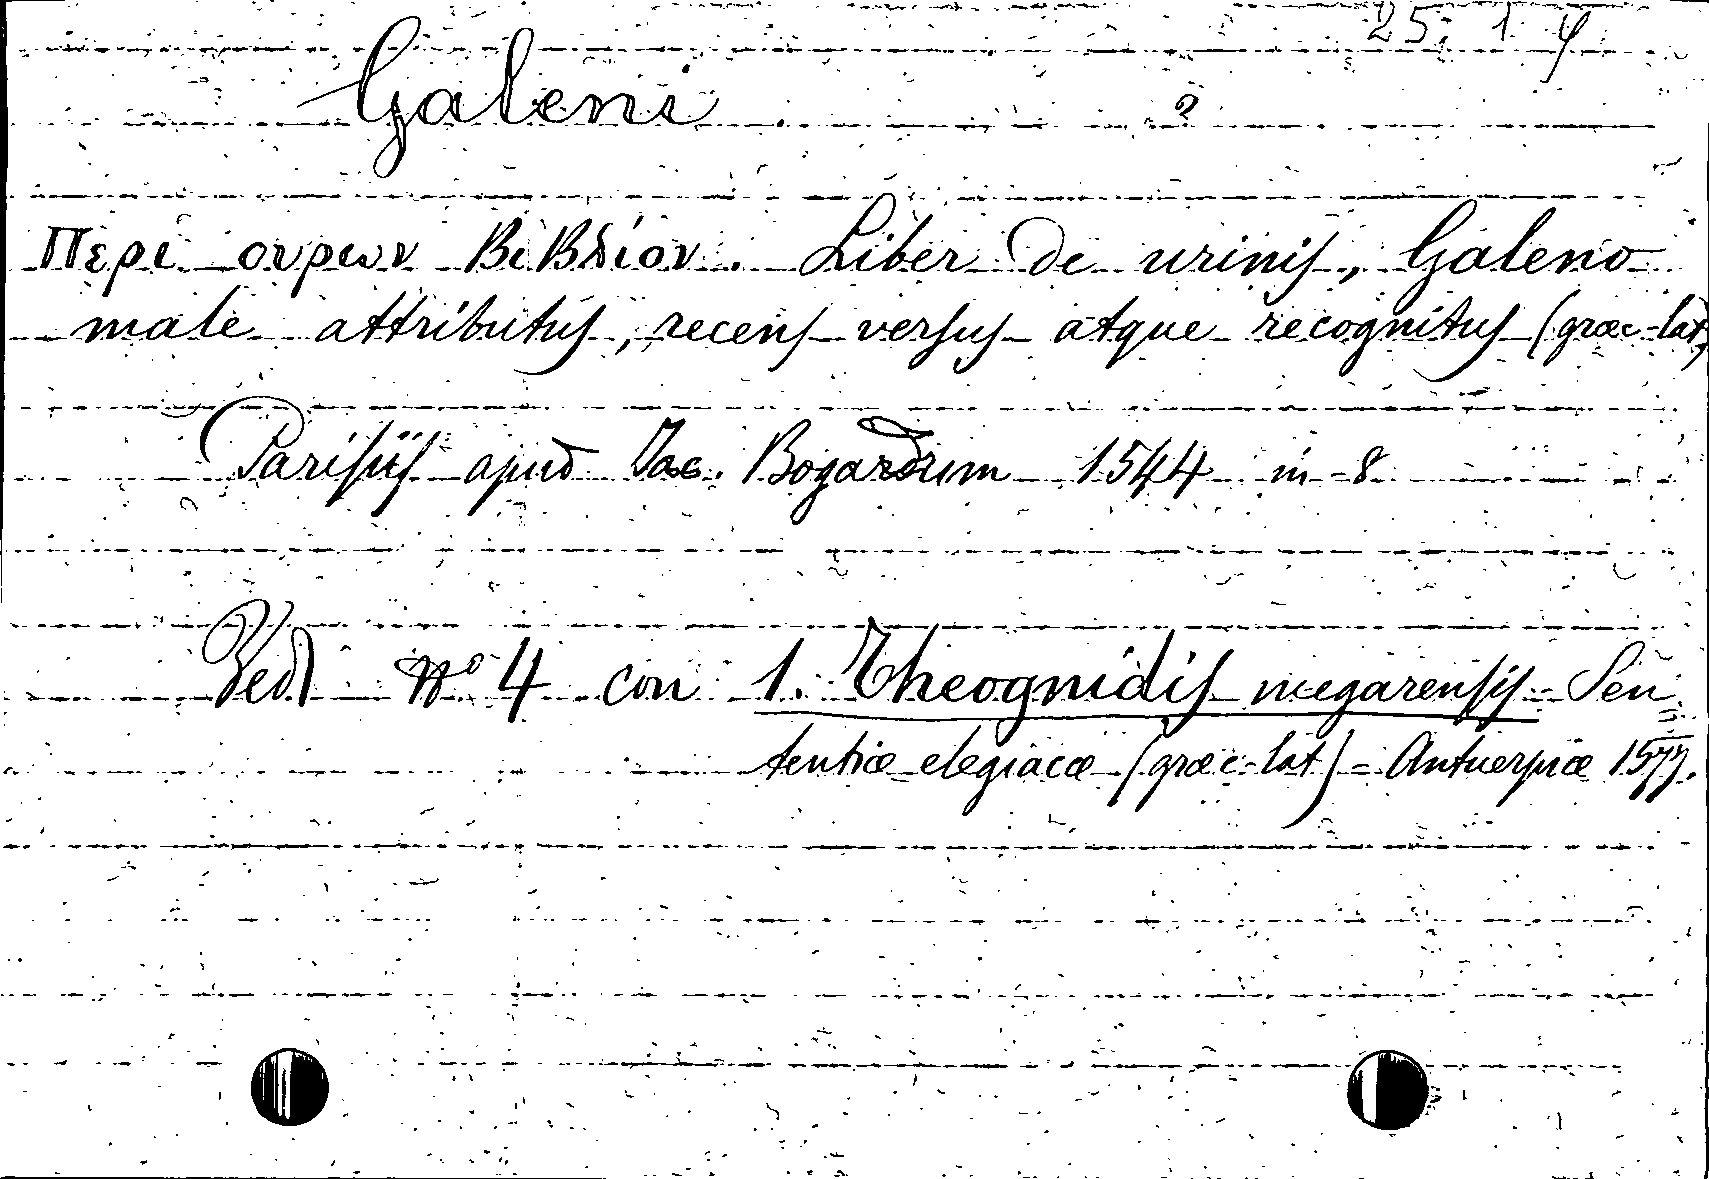 25, 1 4
Galeni
?
Περι ουρων Βιβλιον. Liber de urinis, Galeno
male attributus, recens versus atque recognitus (græc-lat)
Parisiis apud Jac. Bogardum 1544 in-8
Vedi Nº 4 con 1. Theognidis megarensis - Sen
tentiæ elegiacæ (græc-lat) - Antuerpiæ 1577.